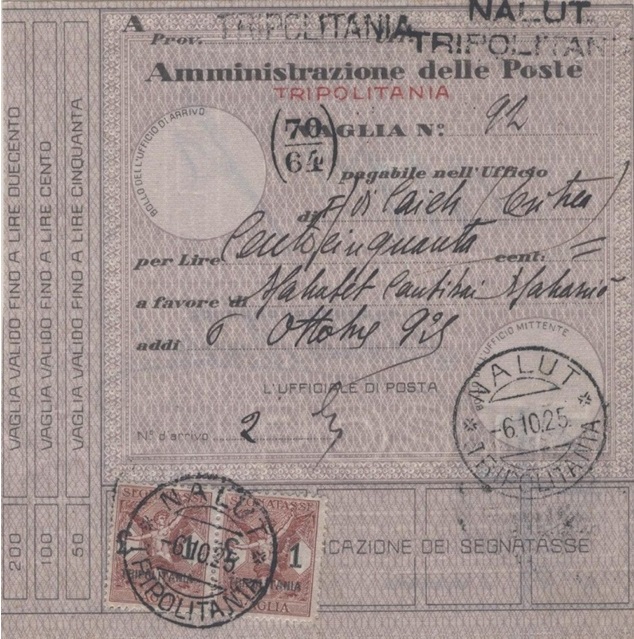 A
NALUT.
Prov. TRIPOLITANIA
TRIPOLITAN
Amministrazione delle Poste
TRIPOLITANIA
(70/64)
VAGLIA N° 92
pagabile nell'Ufficio
di Eritrea
per Lire Centocinquanta cent: =
a favore di
addì 6 Ottobre 925
L'UFFICIALE DI POSTA
N° d'arrivo 2
BOLLO DELL'UFFICIO DI ARRIVO
UFFICIO MITTENTE
NALUT
-6.10.25
TRIPOLITANIA
VAGLIA VALIDO FINO A LIRE DUECENTO
VAGLIA VALIDO FINO A LIRE CENTO
VAGLIA VALIDO FINO A LIRE CINQUANTA
200
100
50
SEGNATASSE
£ 1
£ 1
TRIPOLITANIA
TRIPOLITANIA
VAGLIA
NALUT
-6.10.25
TRIPOLITANIA
CAZIONE DEI SEGNATASSE